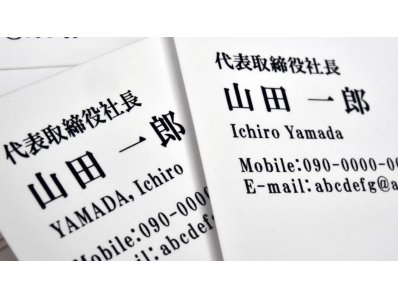 代表取締役社長
山田 一郎
YAMADA, Ichiro
Mobile:090-000
E-mail:abcdef
代表取締役社長
山田 一郎
Ichiro Yamada
Mobile:090-0000-00
E-mail:abcdefg@a